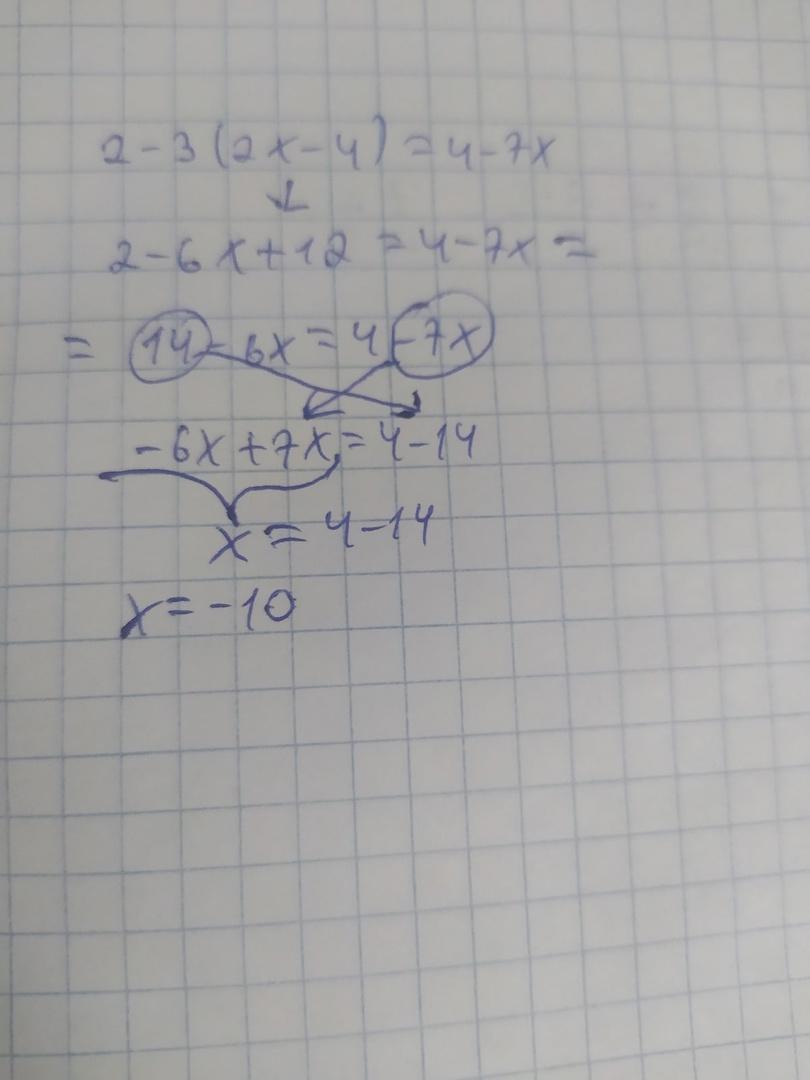 2-3(2x-4)=4-7x
2-6x+12=4-7x=
= 14-6x=4-7x
-6x+7x=4-14
x=4-14
x=-10